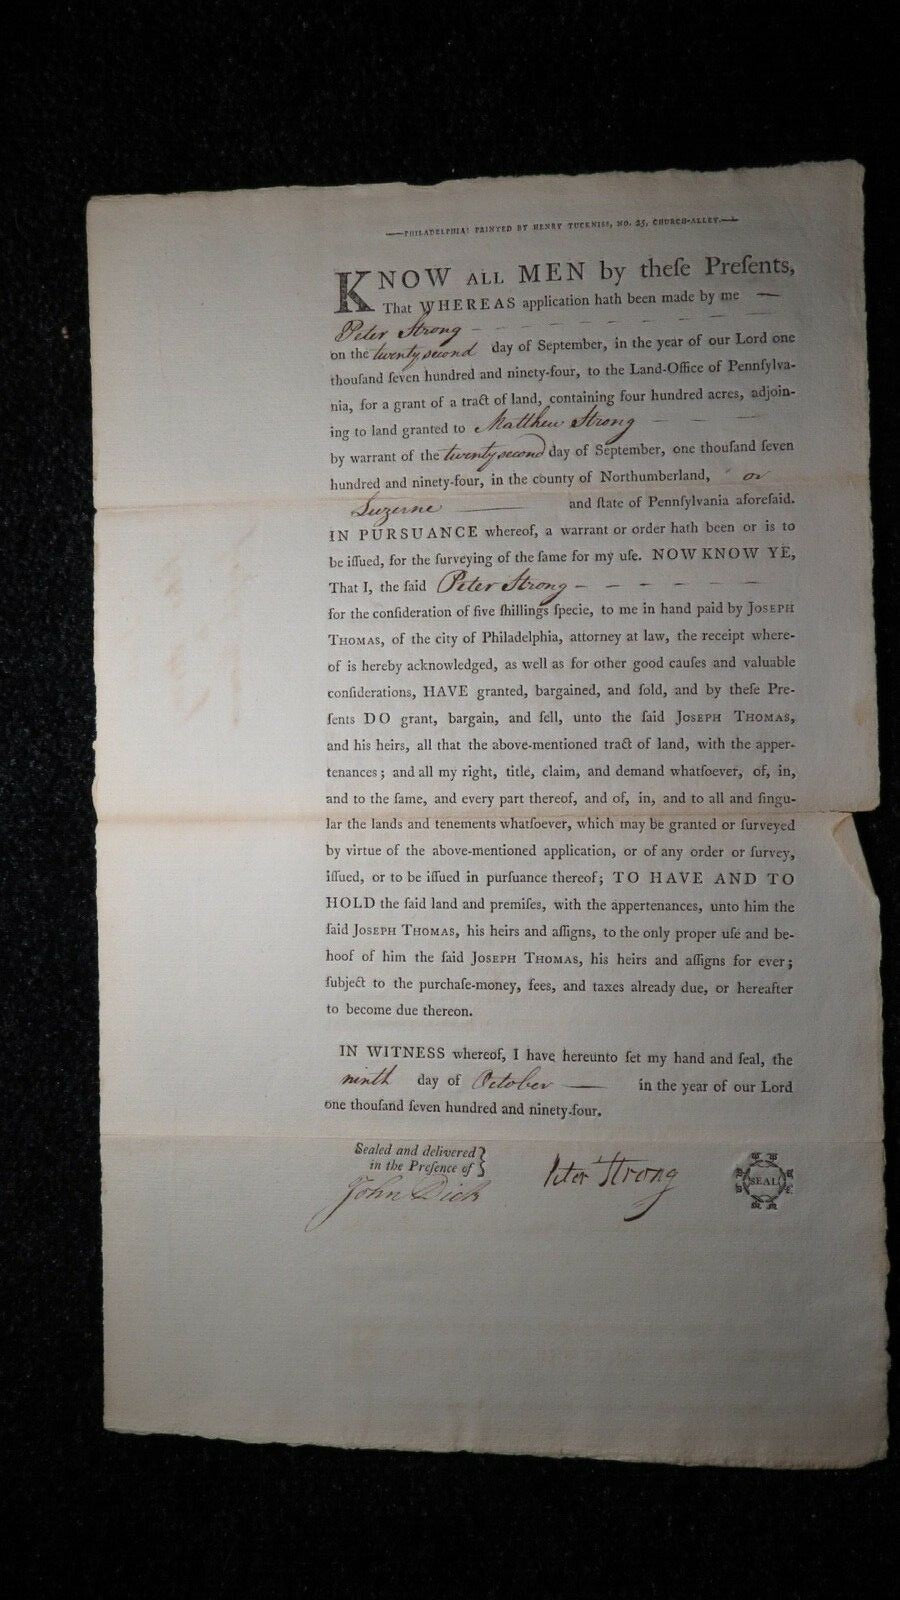 PHILADELPHIA: PRINTED BY HENRY TUCKNISS, NO. 25, CHURCH-ALLEY.
KNOW ALL MEN by theſe Preſents,
That WHEREAS application hath been made by me —
Peter Strong - - - - - - -
on the twenty second day of September, in the year of our Lord one
thouſand ſeven hundred and ninety-four, to the Land-Office of Pennſylva-
nia, for a grant of a tract of land, containing four hundred acres, adjoin-
ing to land granted to Matthew Strong — — —
by warrant of the twenty second day of September, one thouſand ſeven
hundred and ninety-four, in the county of Northumberland, or
Luzerne —— and ſtate of Pennſylvania aforeſaid.
IN PURSUANCE whereof, a warrant or order hath been or is to
be iſſued, for the ſurveying of the ſame for my uſe. NOW KNOW YE,
That I, the ſaid Peter Strong - - - - —
for the conſideration of five ſhillings ſpecie, to me in hand paid by JOSEPH
THOMAS, of the city of Philadelphia, attorney at law, the receipt where-
of is hereby acknowledged, as well as for other good cauſes and valuable
conſiderations, HAVE granted, bargained, and ſold, and by theſe Pre-
ſents DO grant, bargain, and ſell, unto the ſaid JOSEPH THOMAS,
and his heirs, all that the above-mentioned tract of land, with the apper-
tenances; and all my right, title, claim, and demand whatſoever, of, in,
and to the ſame, and every part thereof, and of, in, and to all and ſingu-
lar the lands and tenements whatſoever, which may be granted or ſurveyed
by virtue of the above-mentioned application, or of any order or ſurvey,
iſſued, or to be iſſued in purſuance thereof; TO HAVE AND TO
HOLD the ſaid land and premiſes, with the appertenances, unto him the
ſaid JOSEPH THOMAS, his heirs and aſſigns, to the only proper uſe and be-
hoof of him the ſaid JOSEPH THOMAS, his heirs and aſſigns for ever;
ſubject to the purchaſe-money, fees, and taxes already due, or hereafter
to become due thereon.
IN WITNESS whereof, I have hereunto ſet my hand and ſeal, the
ninth day of October — in the year of our Lord
one thouſand ſeven hundred and ninety-four.
Sealed and delivered }
in the Preſence of }
John Dick
Peter Strong
SEAL